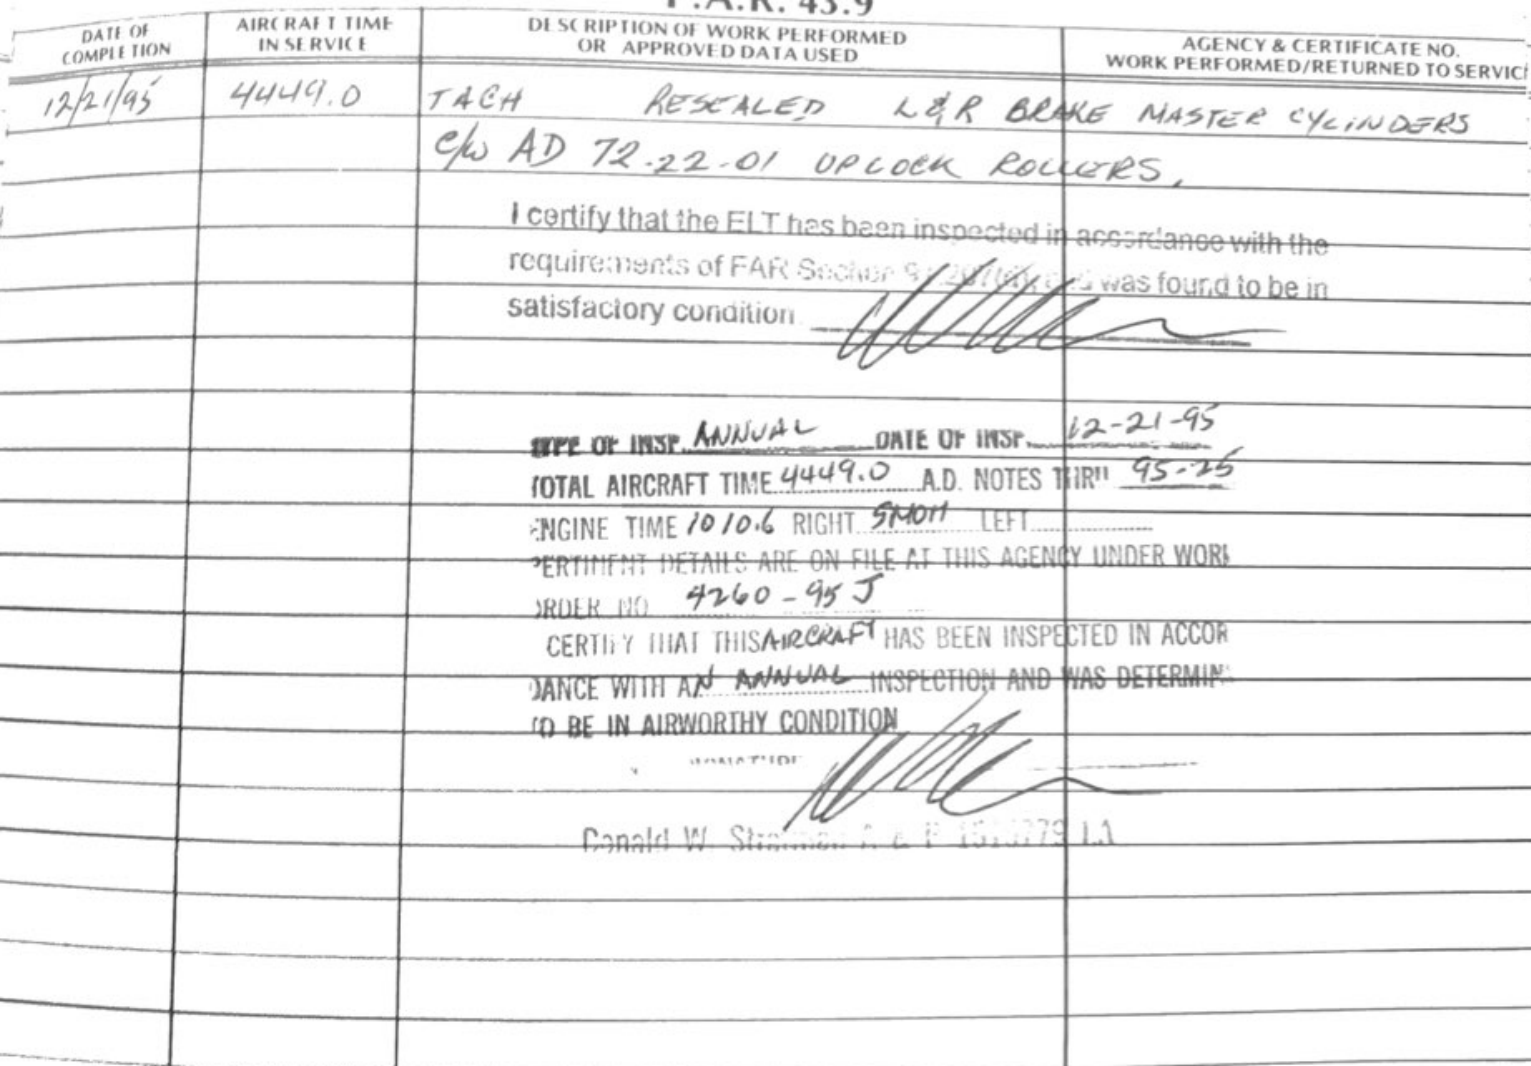 F.A.R. 43.9
DATE OF COMPLETION
AIRCRAFT TIME IN SERVICE
DESCRIPTION OF WORK PERFORMED OR APPROVED DATA USED
AGENCY & CERTIFICATE NO. WORK PERFORMED/RETURNED TO SERVIC
12/21/95 4449.0 TACH RESEALED L&R BRAKE MASTER CYLINDERS
C/W AD 72-22-01 UPLOCK ROLLERS.
I certify that the ELT has been inspected in accordance with the
requirements of FAR Section and was found to be in
satisfactory condition
TYPE OF INSP. ANNUAL DATE OF INSP. 12-21-95
TOTAL AIRCRAFT TIME 4449.0 A.D. NOTES THRU 95-25
ENGINE TIME 1010.6 RIGHT SMOH LEFT
PERTINENT DETAILS ARE ON FILE AT THIS AGENCY UNDER WORK
ORDER NO 4260-95 J
CERTIFY THAT THIS AIRCRAFT HAS BEEN INSPECTED IN ACCOR
DANCE WITH AN ANNUAL INSPECTION AND WAS DETERMIN
TO BE IN AIRWORTHY CONDITION
SIGNATURE
Donald W.